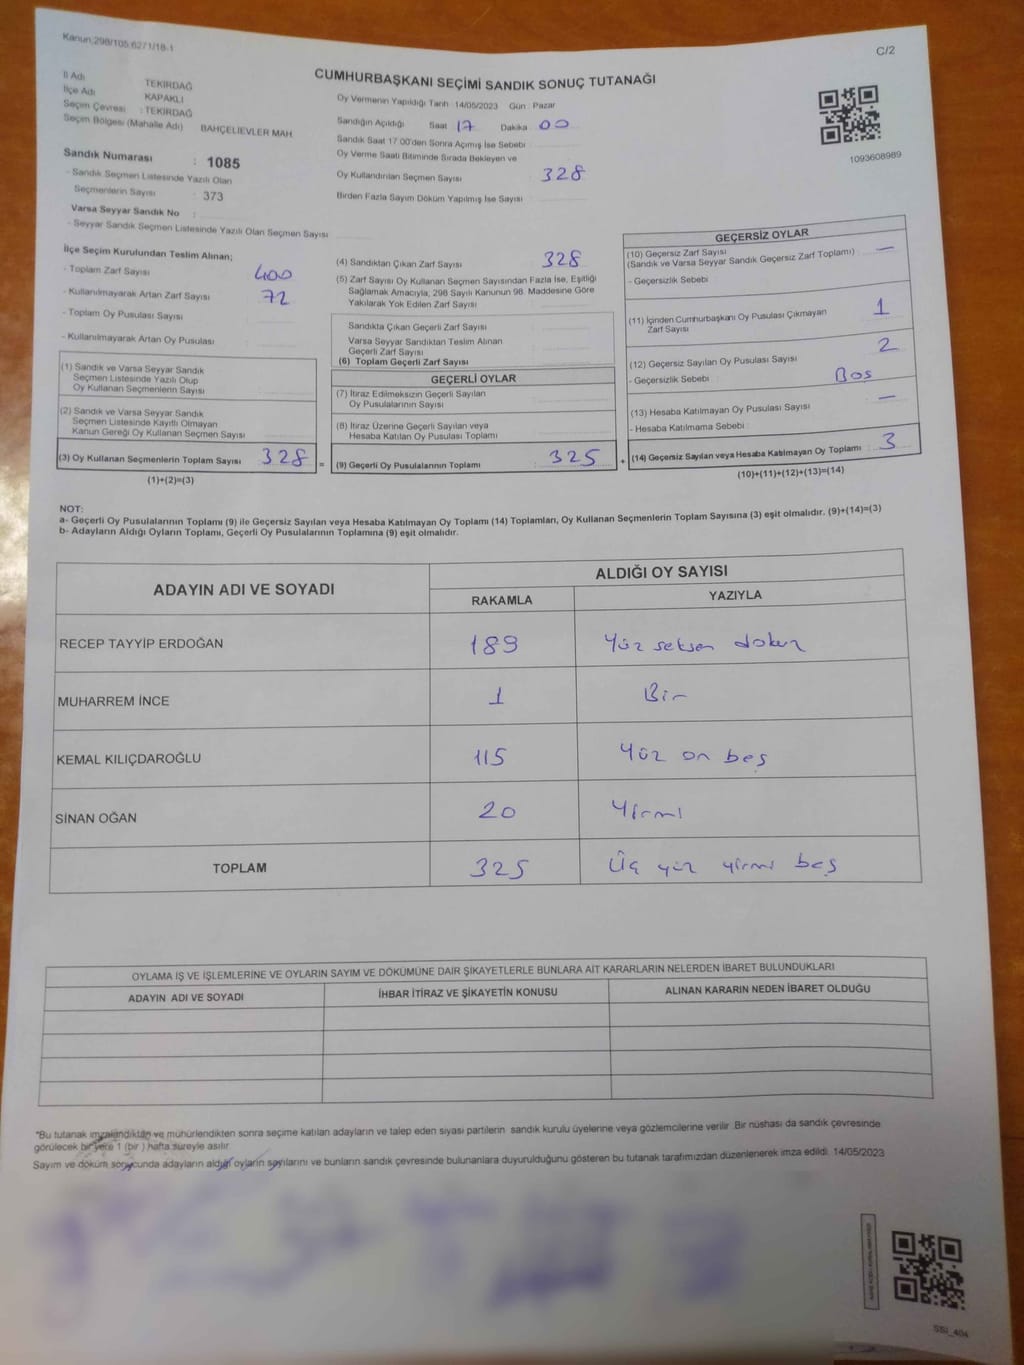 Kanun:298/105,627 1/18-1
C/2
CUMHURBAŞKANI SEÇİMİ SANDIK SONUÇ TUTANAĞI
İl Adı TEKİRDAĞ
İlçe Adı KAPAKLI
Seçim Çevresi : TEKİRDAĞ
Seçim Bölgesi (Mahalle Adı) BAHÇELİEVLER MAH.
Sandık Numarası : 1085
- Sandık Seçmen Listesinde Yazılı Olan
Seçmenlerin Sayısı : 373
Varsa Seyyar Sandık No :
- Seyyar Sandık Seçmen Listesinde Yazılı Olan Seçmen Sayısı
Oy Vermenin Yapıldığı Tarih 14/05/2023 Gün : Pazar
Sandığın Açıldığı Saat 17 Dakika 00
Sandık Saat 17.00'den Sonra Açılmış İse Sebebi
Oy Verme Saati Bitiminde Sırada Bekleyen ve
Oy Kullandırılan Seçmen Sayısı 328
Birden Fazla Sayım Döküm Yapılmış İse Sayısı
1093608989
İlçe Seçim Kurulundan Teslim Alınan;
- Toplam Zarf Sayısı 400
- Kullanılmayarak Artan Zarf Sayısı 72
- Toplam Oy Pusulası Sayısı
- Kullanılmayarak Artan Oy Pusulası
(1) Sandık ve Varsa Seyyar Sandık
Seçmen Listesinde Yazılı Olup
Oy Kullanan Seçmenlerin Sayısı
(2) Sandık ve Varsa Seyyar Sandık
Seçmen Listesinde Kayıtlı Olmayan
Kanun Gereği Oy Kullanan Seçmen Sayısı
(3) Oy Kullanan Seçmenlerin Toplam Sayısı 328 =
(1)+(2)=(3)
(4) Sandıktan Çıkan Zarf Sayısı 328
(5) Zarf Sayısı Oy Kullanan Seçmen Sayısından Fazla İse, Eşitliği
Sağlamak Amacıyla; 298 Sayılı Kanunun 98. Maddesine Göre
Yakılarak Yok Edilen Zarf Sayısı
Sandıkta Çıkan Geçerli Zarf Sayısı
Varsa Seyyar Sandıktan Teslim Alınan
Geçerli Zarf Sayısı
(6) Toplam Geçerli Zarf Sayısı
GEÇERLİ OYLAR
(7) İtiraz Edilmeksizin Geçerli Sayılan
Oy Pusulalarının Sayısı
(8) İtiraz Üzerine Geçerli Sayılan veya
Hesaba Katılan Oy Pusulası Toplamı
(9) Geçerli Oy Pusulalarının Toplamı 325 +
GEÇERSİZ OYLAR
(10) Geçersiz Zarf Sayısı —
(Sandık ve Varsa Seyyar Sandık Geçersiz Zarf Toplamı)
- Geçersizlik Sebebi
(11) İçinden Cumhurbaşkanı Oy Pusulası Çıkmayan 1
Zarf Sayısı
(12) Geçersiz Sayılan Oy Pusulası Sayısı 2
- Geçersizlik Sebebi Bos
(13) Hesaba Katılmayan Oy Pusulası Sayısı —
- Hesaba Katılmama Sebebi
(14) Geçersiz Sayılan veya Hesaba Katılmayan Oy Toplamı 3
(10)+(11)+(12)+(13)=(14)
NOT:
a- Geçerli Oy Pusulalarının Toplamı (9) ile Geçersiz Sayılan veya Hesaba Katılmayan Oy Toplamı (14) Toplamları, Oy Kullanan Seçmenlerin Toplam Sayısına (3) eşit olmalıdır. (9)+(14)=(3)
b- Adayların Aldığı Oyların Toplamı, Geçerli Oy Pusulalarının Toplamına (9) eşit olmalıdır.
ADAYIN ADI VE SOYADI ALDIĞI OY SAYISI
RAKAMLA YAZIYLA
RECEP TAYYİP ERDOĞAN 189 Yüz seksen dokuz
MUHARREM İNCE 1 Bir
KEMAL KILIÇDAROĞLU 115 Yüz on beş
SİNAN OĞAN 20 Yirmi
TOPLAM 325 Üç yüz yirmi beş
OYLAMA İŞ VE İŞLEMLERİNE VE OYLARIN SAYIM VE DÖKÜMÜNE DAİR ŞİKAYETLERLE BUNLARA AİT KARARLARIN NELERDEN İBARET BULUNDUKLARI
ADAYIN ADI VE SOYADI İHBAR İTİRAZ VE ŞİKAYETİN KONUSU ALINAN KARARIN NEDEN İBARET OLDUĞU
"Bu tutanak imzalandıktan ve mühürlendikten sonra seçime katılan adayların ve talep eden siyasi partilerin sandık kurulu üyelerine veya gözlemcilerine verilir. Bir nüshası da sandık çevresinde
görülecek bir yere 1 (bir ) hafta süreyle asılır.
Sayım ve döküm sonucunda adayların aldığı oyların sayılarını ve bunların sandık çevresinde bulunanlara duyurulduğunu gösteren bu tutanak tarafımızdan düzenlenerek imza edildi. 14/05/2023
SSI_404